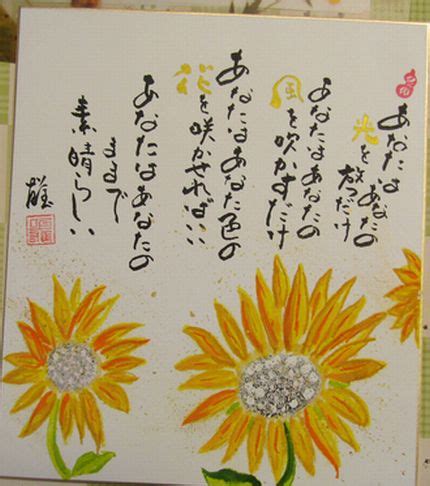 あなたは
あなたの
光を放つだけ
あなたはあなたの
風を吹かすだけ
あなたはあなた色の
花を咲かせればいい
あなたはあなたの
ままで
素晴らしい
雄